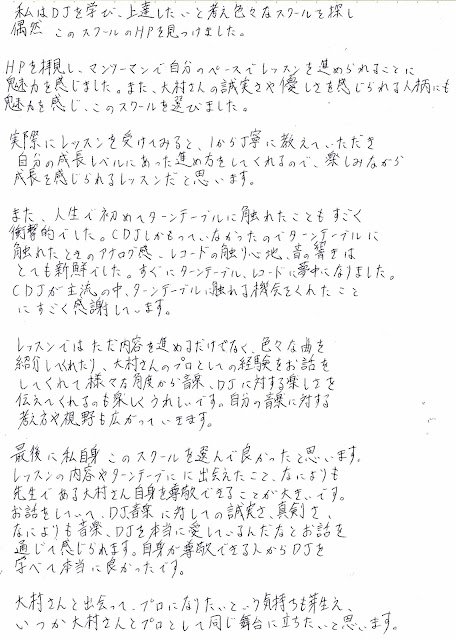 私はDJを学び、上達したいと考え色々なスクールを探し
偶然 このスクールのHPを見つけました。
HPを拝見し、マンツーマンで自分のペースでレッスンを進められることに
魅力を感じました。また、大村さんの誠実さや優しさを感じられる人柄にも
魅力を感じ、このスクールを選びました。
実際にレッスンを受けてみると、1から丁寧に教えていただき
自分の成長レベルにあった進め方をしてくれるので、楽しみながら
成長を感じられるレッスンだと思います。
また、人生で初めてターンテーブルに触れたこともすごく
衝撃的でした。CDJしかもっていなかったのでターンテーブルに
触れたときのアナログ感、レコードの触り心地、音の響きは
とても新鮮でした。すぐにターンテーブル、レコードに夢中になりました。
CDJが主流の中、ターンテーブルに触れる機会をくれたこと
にすごく感謝しています。
レッスンではただ内容を進めるだけでなく、色々な曲を
紹介してくれたり、大村さんのプロとしての経験をお話を
してくれて様々な角度から音楽、DJに対する楽しさを
伝えてくれるのも楽しくうれしいです。自分の音楽に対する
考え方や視野も広がっていきます。
最後に私自身このスクールを選んで良かったと思います。
レッスンの内容やターンテーブにに出会えたこと、なによりも
先生である大村さん自身を尊敬できることが大きいです。
お話をしていて、DJ音楽に対しての誠実さ、真剣さ、
なによりも音楽、DJを本当に愛しているんだなとお話を
通じて感じられます。自身が尊敬できる人からDJを
学べて本当に良かったです。
大村さんと出会って、プロになりたいという気持ちも芽生え、
いつか大村さんとプロとして同じ舞台に立ちたいと思います。